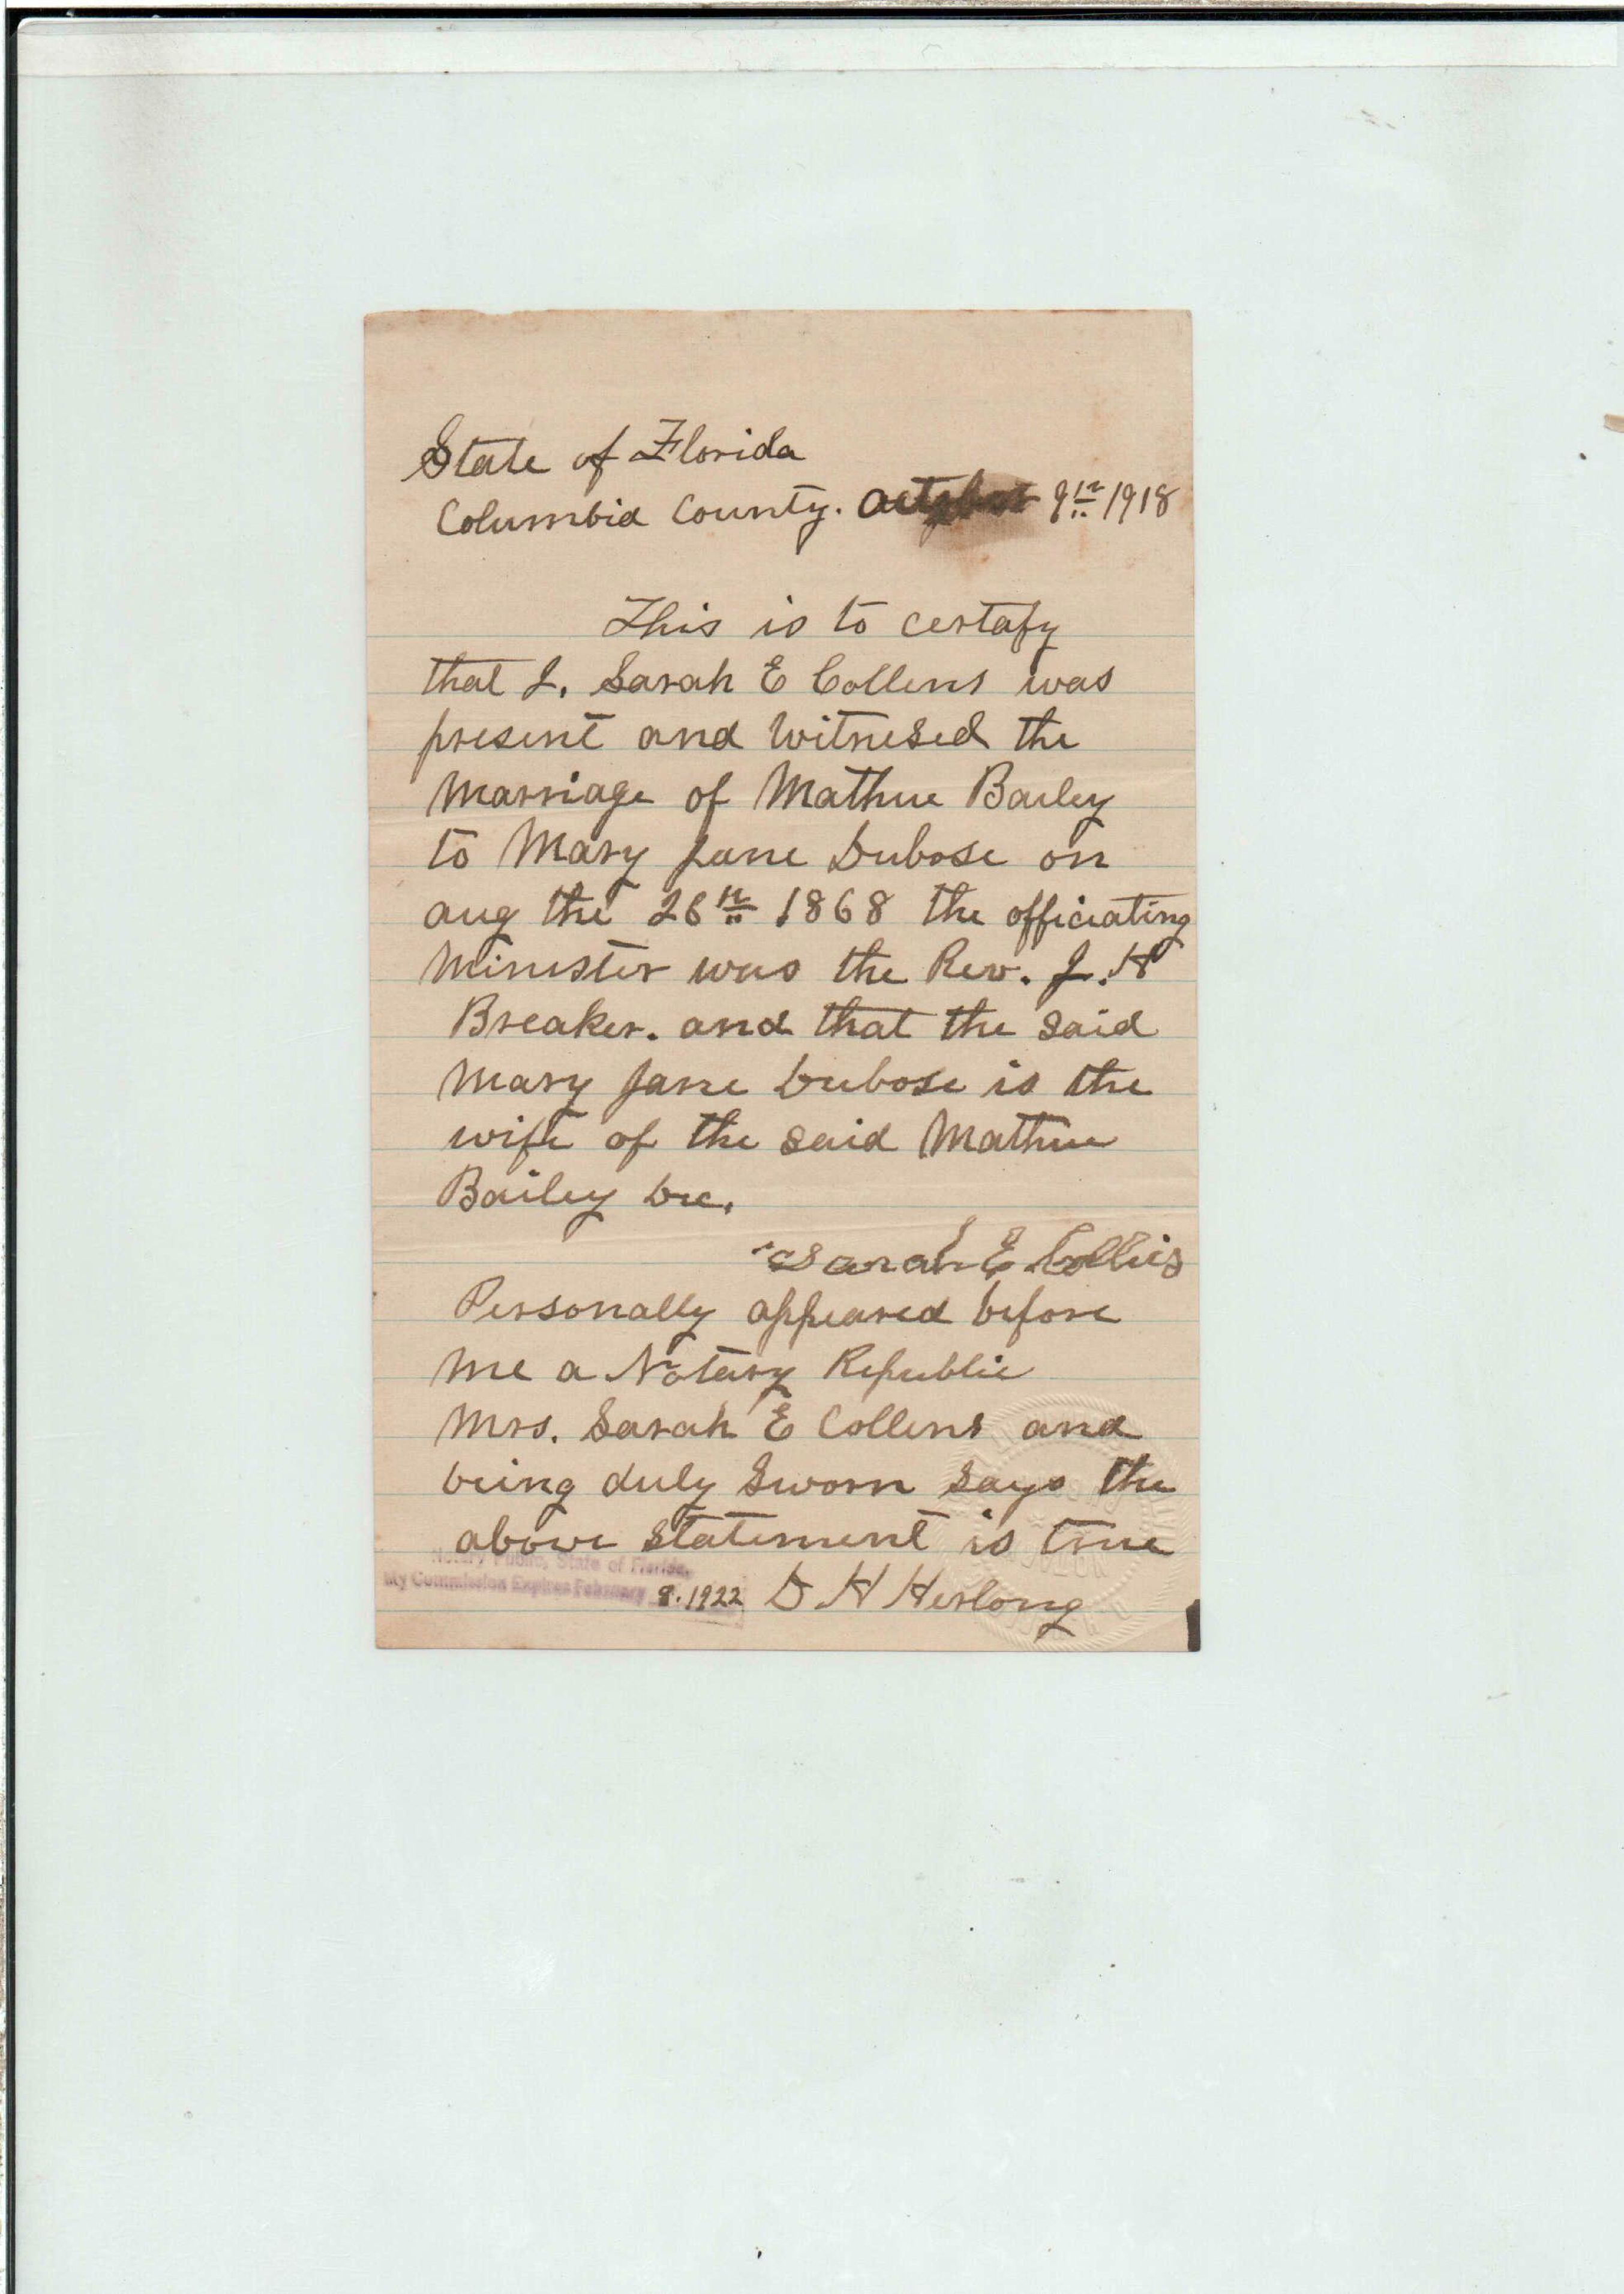 State of Florida
Columbia County. October 9th 1918
This is to certafy
that I. Sarah E Collens was
present and witnesed the
Marriage of Mathue Bailey
to Mary Jane Dubose on
aug the 26th 1868 the officiating
Minister was the Rev. J. H
Breaker. and that the said
Mary Jane Dubose is the
wife of the said Mathue
Bailey Dec.
Sarah E Collis
Personally appeared before
me a Notary Republic
Mrs. Sarah E Collens and
being duly Sworn says the
above statement is true
Notary Public, State of Florida,
My Commission Expires February 8. 1922
D H Herlong